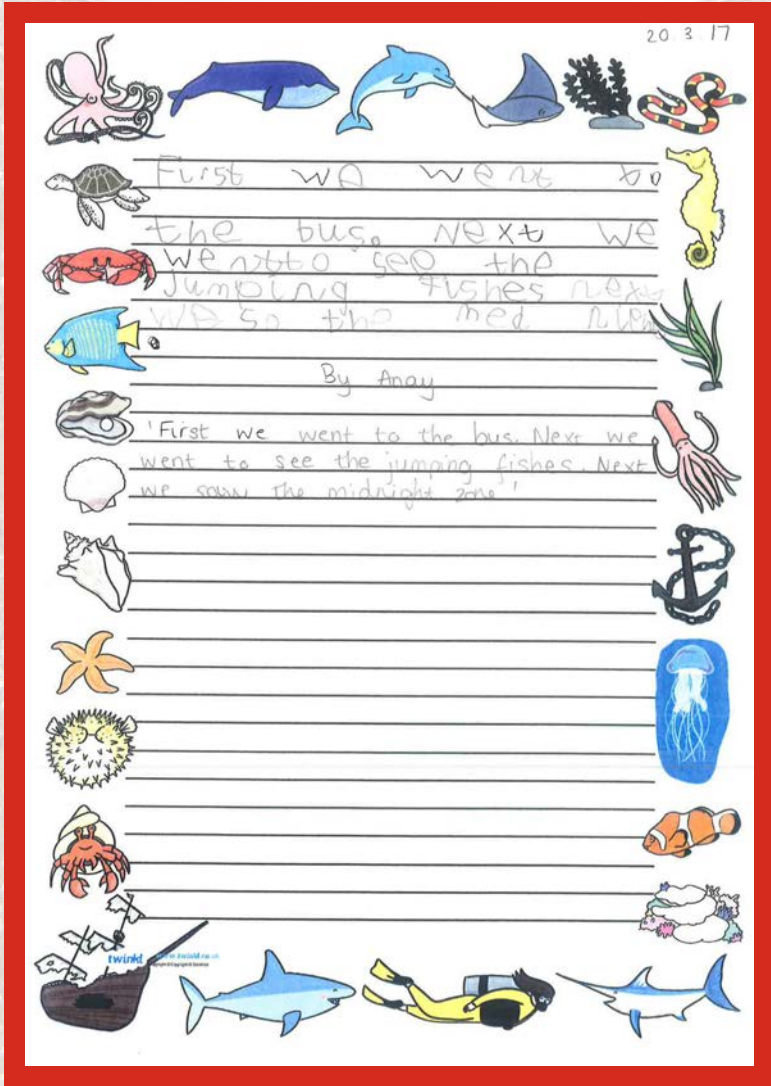 20.3.17
First we went to
the bus. Next we
wentto see the
Jumping fishes next
we so the med
By Anay
'First we went to the bus. Next we
went to see the jumping fishes. Next
we saw the midnight zone'
twinkl www.twinkl.co.uk